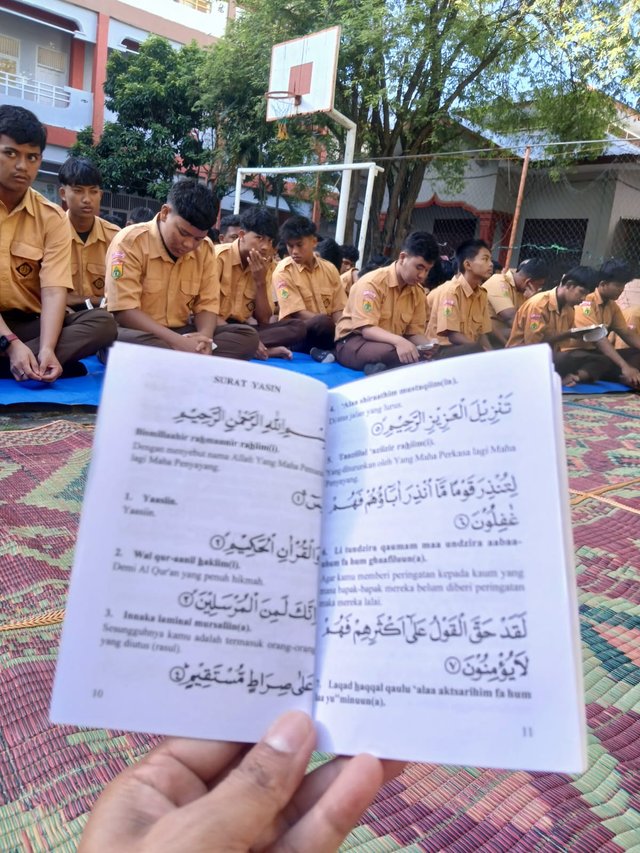 SURAT YASIN
بِسْمِ اللهِ الرَّحْمٰنِ الرَّحِيْمِ
Bismillaahir rahmaanir rahiim(i).
Dengan menyebut nama Allah Yang Maha
lagi Maha Penyayang.
1. Yaasiin.
Yaasiin.
وَالْقُرْاٰنِ الْحَكِيْمِ ﴿٢﴾
2. Wal qur-aanil hakiim(i).
Demi Al Qur'an yang penuh hikmah.
اِنَّكَ لَمِنَ الْمُرْسَلِيْنَ ﴿٣﴾
3. Innaka laminal mursaliin(a).
Sesungguhnya kamu adalah termasuk orang-orang
yang diutus (rasul).
عَلٰى صِرَاطٍ مُّسْتَقِيْمٍ ﴿٤﴾
10
4. 'Alaa shiraathim mustaqiim(in).
Diatas jalan yang lurus.
تَنْزِيْلَ الْعَزِيْزِ الرَّحِيْمِ ﴿٥﴾
5. Tanziilal 'aziizir rahiim(i).
Yang diturunkan oleh Yang Maha Perkasa lagi Maha
Penyayang.
لِتُنْذِرَ قَوْمًا مَّا اُنْذِرَ اٰبَاۤؤُهُمْ فَهُمْ
غٰفِلُوْنَ ﴿٦﴾
6. Li tundzira qaumam maa undzira aabaa-
uhum fa hum ghaafiluun(a).
Agar kamu memberi peringatan kepada kaum yang
mana bapak-bapak mereka belum diberi peringatan
maka mereka lalai.
لَقَدْ حَقَّ الْقَوْلُ عَلٰٓى اَكْثَرِهِمْ فَهُمْ
لَايُؤْمِنُوْنَ ﴿٧﴾
7. Laqad haqqal qaulu 'alaa aktsarihim fa hum
laa yu'minuun(a).
11